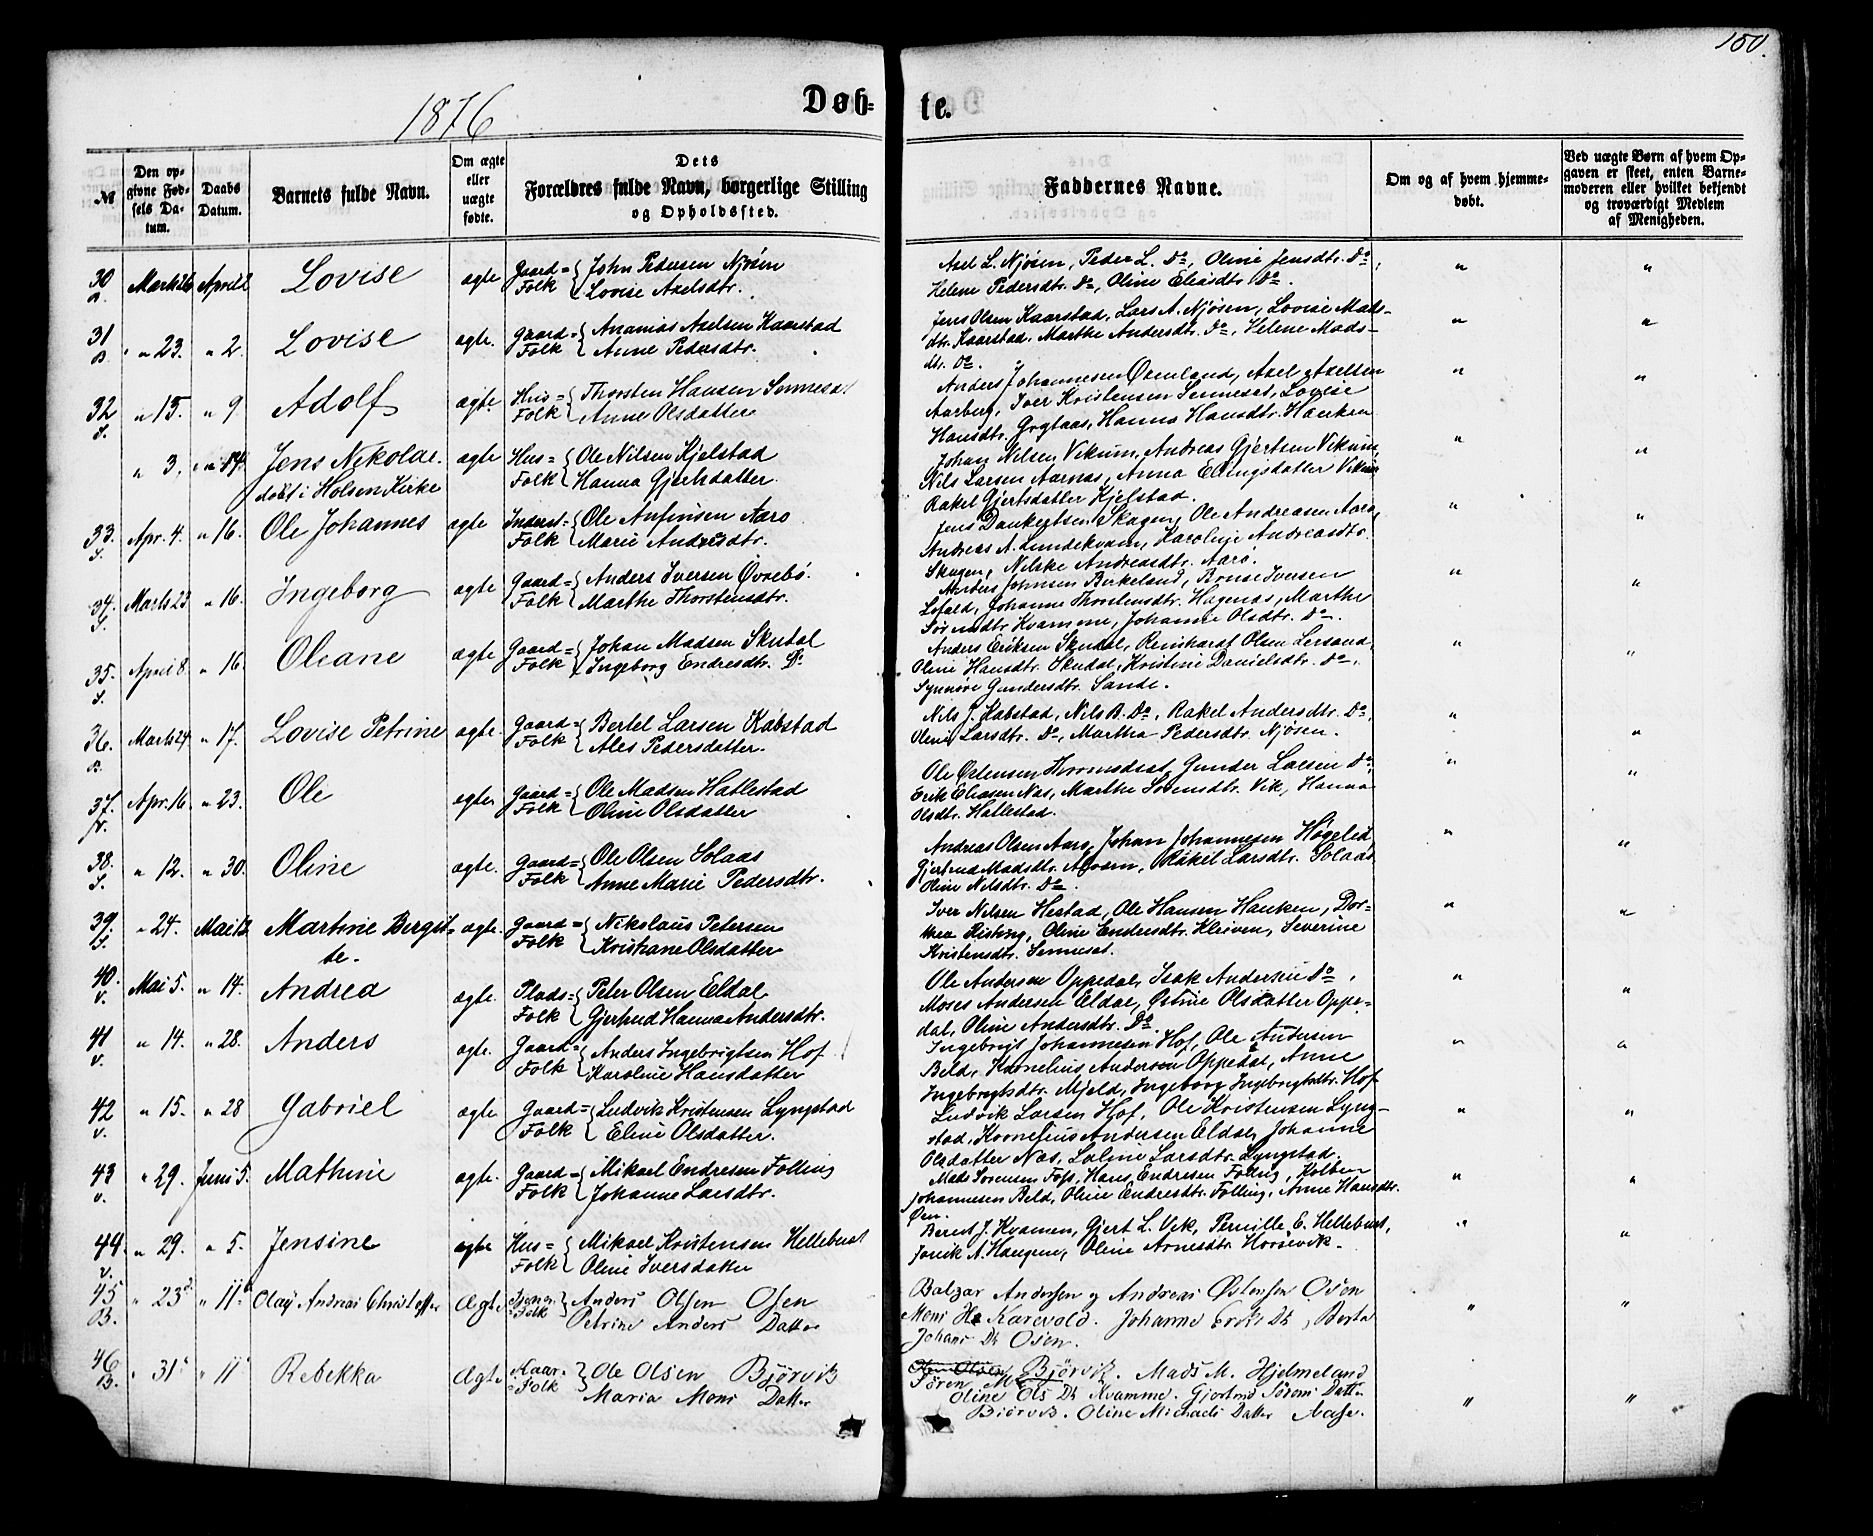 150.
1876
Døb-
te.
№
Den op-
givne Fød-
sels Da-
tum.
Daabs
Datum.
Barnets fulde Navn.
Om ægte
eller
uægte
fødte.
Dets
Forældres fulde Navn, borgerlige Stilling
og Opholdssted.
Faddernes Navne.
Om og af hvem hjemme-
døbt.
Ved uægte Børn af hvem Op-
gaven er skeet, enten Barne-
moderen eller hvilket bekjendt
og troværdigt Medlem
af Menigheden.
30 Marts 26 April 2 Lovise ægte Gaard= John Pedersen Njøsen
B. Folk Lovise Axelsdtr.
Axel L. Njøsen, Peder L. Do, Oline Jensdtr. Do,
Helene Pedersdtr. Do, Oline Eliasdtr. Do.
31 " 23. " 2. Lovise ægte. Gaard= Ananias Axelsen Kaarstad
B. Folk Anne Pedersdtr.
Jens Olsen Kaarstad, Lars A. Njøsen, Lovise Mads-
dtr. Kaarstad, Marthe Andersdtr. Do, Helene Mads-
dtr. Do.
32 " 15. " 9 Adolf ægte. Hus= Thorsten Hansen
S. Folk Anne Olsdatter
Anders Johannesen Øxenland, Axel Axelsen
Aarberg, Iver Kristensen Senneset, Lovise
Hansdtr. Hanna Hansdtr. Hauken
" 3. " 14. Jens Nikolai ægte Hus= Ole Nilsen Kjelstad
døbt i Holsen Kirke Folk Hanna Gjertsdatter.
Johan Nilsen Vikum, Andreas Gjertsen Vikum,
Nils Larsen Aarnæs, Anna Ellingsdatter Vikum
Rakel Gjertsdatter Kjelstad.
33. Apr. 4. " 16. Ole Johannes ægte Inderst= Ole Anfinsen Aarø
S. Folk Marie Andreasdtr.
Jens Dankertsen Skagen, Ole Andreasen Aarø,
Andreas A. Lundekvam, Karoline Andreasdtr.
Skagen, Nilske Andreasdtr. Aarø.
34. Marts 23 " 16. Ingeborg ægte Gaard= Anders Iversen Øvrebø.
S. Folk Marthe Thorstensdtr.
Anders Johnsen Birkeland, Iversen
Løfald, Johanne Thorstensdtr. Hagenæs, Marthe
Kvamme, Johanne Olsdtr. Do.
35. April 8. " 16. Oleane ægte Gaard= Johan Madsen Skudal
S. Folk Ingeborg Endresdtr. Do
Anders Eriksen Skudal, Reinhardt Olsen
Oline Hansdtr. Skudal, Kristine Danielsdtr. Do,
Synnøve Gundersdtr. Sande.
36. Marts 24 " 17. Lovise Petrine ægte. Gaard= Bertel Larsen Kobstad
B. Folk Ales Pedersdatter.
Nils J. Kobstad, Nils B. Do, Rakel Andersdtr. Do,
Oline Larsdtr. Do, Martha Pedersdtr. Njøsen.
37. Apr. 16. " 23. Ole ægte Gaard= Ole Madsen Hatlestad
V. Folk Oline Olsdatter
Ole Østensen Gunder Larsen Do,
Erik Eliasen Næs, Marthe Sørensdtr. Vik, Hanna
Olsdtr. Hatlestad.
38. " 12. " 30. Oline ægte. Gaard= Ole Olsen Solaas
S. Folk Anne Marie Pedersdtr.
Andreas Olsen Aarø, Johan Johannesen Høgelid
Gjertrud Madsdtr. Rakel Larsdtr. Solaas
Oline Nilsdtr. Do.
39. " 24. Mai 13. Martine Bergit- ægte. Gaard= Nikolaus Petersen
S. te. Folk Kristiane Olsdatter
Iver Nilsen Hestad, Ole Hansen Hauken, Dor-
thea Risting, Oline Endresdtr. Kleiven, Severine
Kristensdtr. Senneset.
40. Mai 5. " 14. Andrea ægte. Plads= Peter Olsen Eldal
V. Folk Gjertrud Hanna Andersdtr.
Ole Andersen Oppedal, Isak Andersen Do,
Moses Andersen Eldal, Østine Olsdatter Oppe-
dal, Oline Andersdtr. Do.
41 " 14. " 28. Anders ægte. Gaard= Anders Ingebrigtsen Hof
V. Folk Karoline Hansdatter
Ingebrigt Johannesen Hof, Ole Andersen
Beld, Kornelius Andersen Oppedal, Anne
Ingebrigtsdtr. Mjeld, Ingeborg Ingebrigtsdtr. Hof
42 " 15. " 28 Gabriel ægte Gaard= Ludvik Kristensen Lyngstad
V. Folk Eline Olsdatter.
Ludvik Larsen Hof, Ole Kristensen Lyng-
stad, Kornelius Andersen Eldal, Johanne
Olsdatter Næs, Larsdtr. Lyngstad.
43 " 29. Juni 5. Mathine ægte. Gaard= Mikael Endresen Følling
V. Folk Johanne Larsdtr.
Mads Sørensen Foss, Hans Endresen Følling, Kolben
Johannesen Beld, Oline Endresdtr. Følling, Anne Hansdtr.
Øen.
44. " 29. " 5. Jensine ægte Hus= Mikael Kristensen Hellebust
V. Folk Oline Iversdatter
Berent J. Kvamen, Gjert L. Vik, Pernille E. Hellebust,
A. Haugene, Oline Arnesdtr. Horsevik.
45 " 23 " 11 Olaj Andreas Christoffer Ægte Anders Olsen Osen
B. Folk Petrine Anders Datter
Balzar Andersen og Andreas Østensen Osen
Mons Karevold. Johanne Eriks Dt, Berta
Johans Dt Osen.
46 " 31 " 11 Rebekka Ægte Ole Olsen Bjørvik
B. Folk Maria Mons Datter
Søren M. Bjørvik. Mads M. Hjelmeland
Oline Ols Dt Kvamme. Gjertrud Sørens Datter
Bjørvik. Oline Michaels Datter Aase.